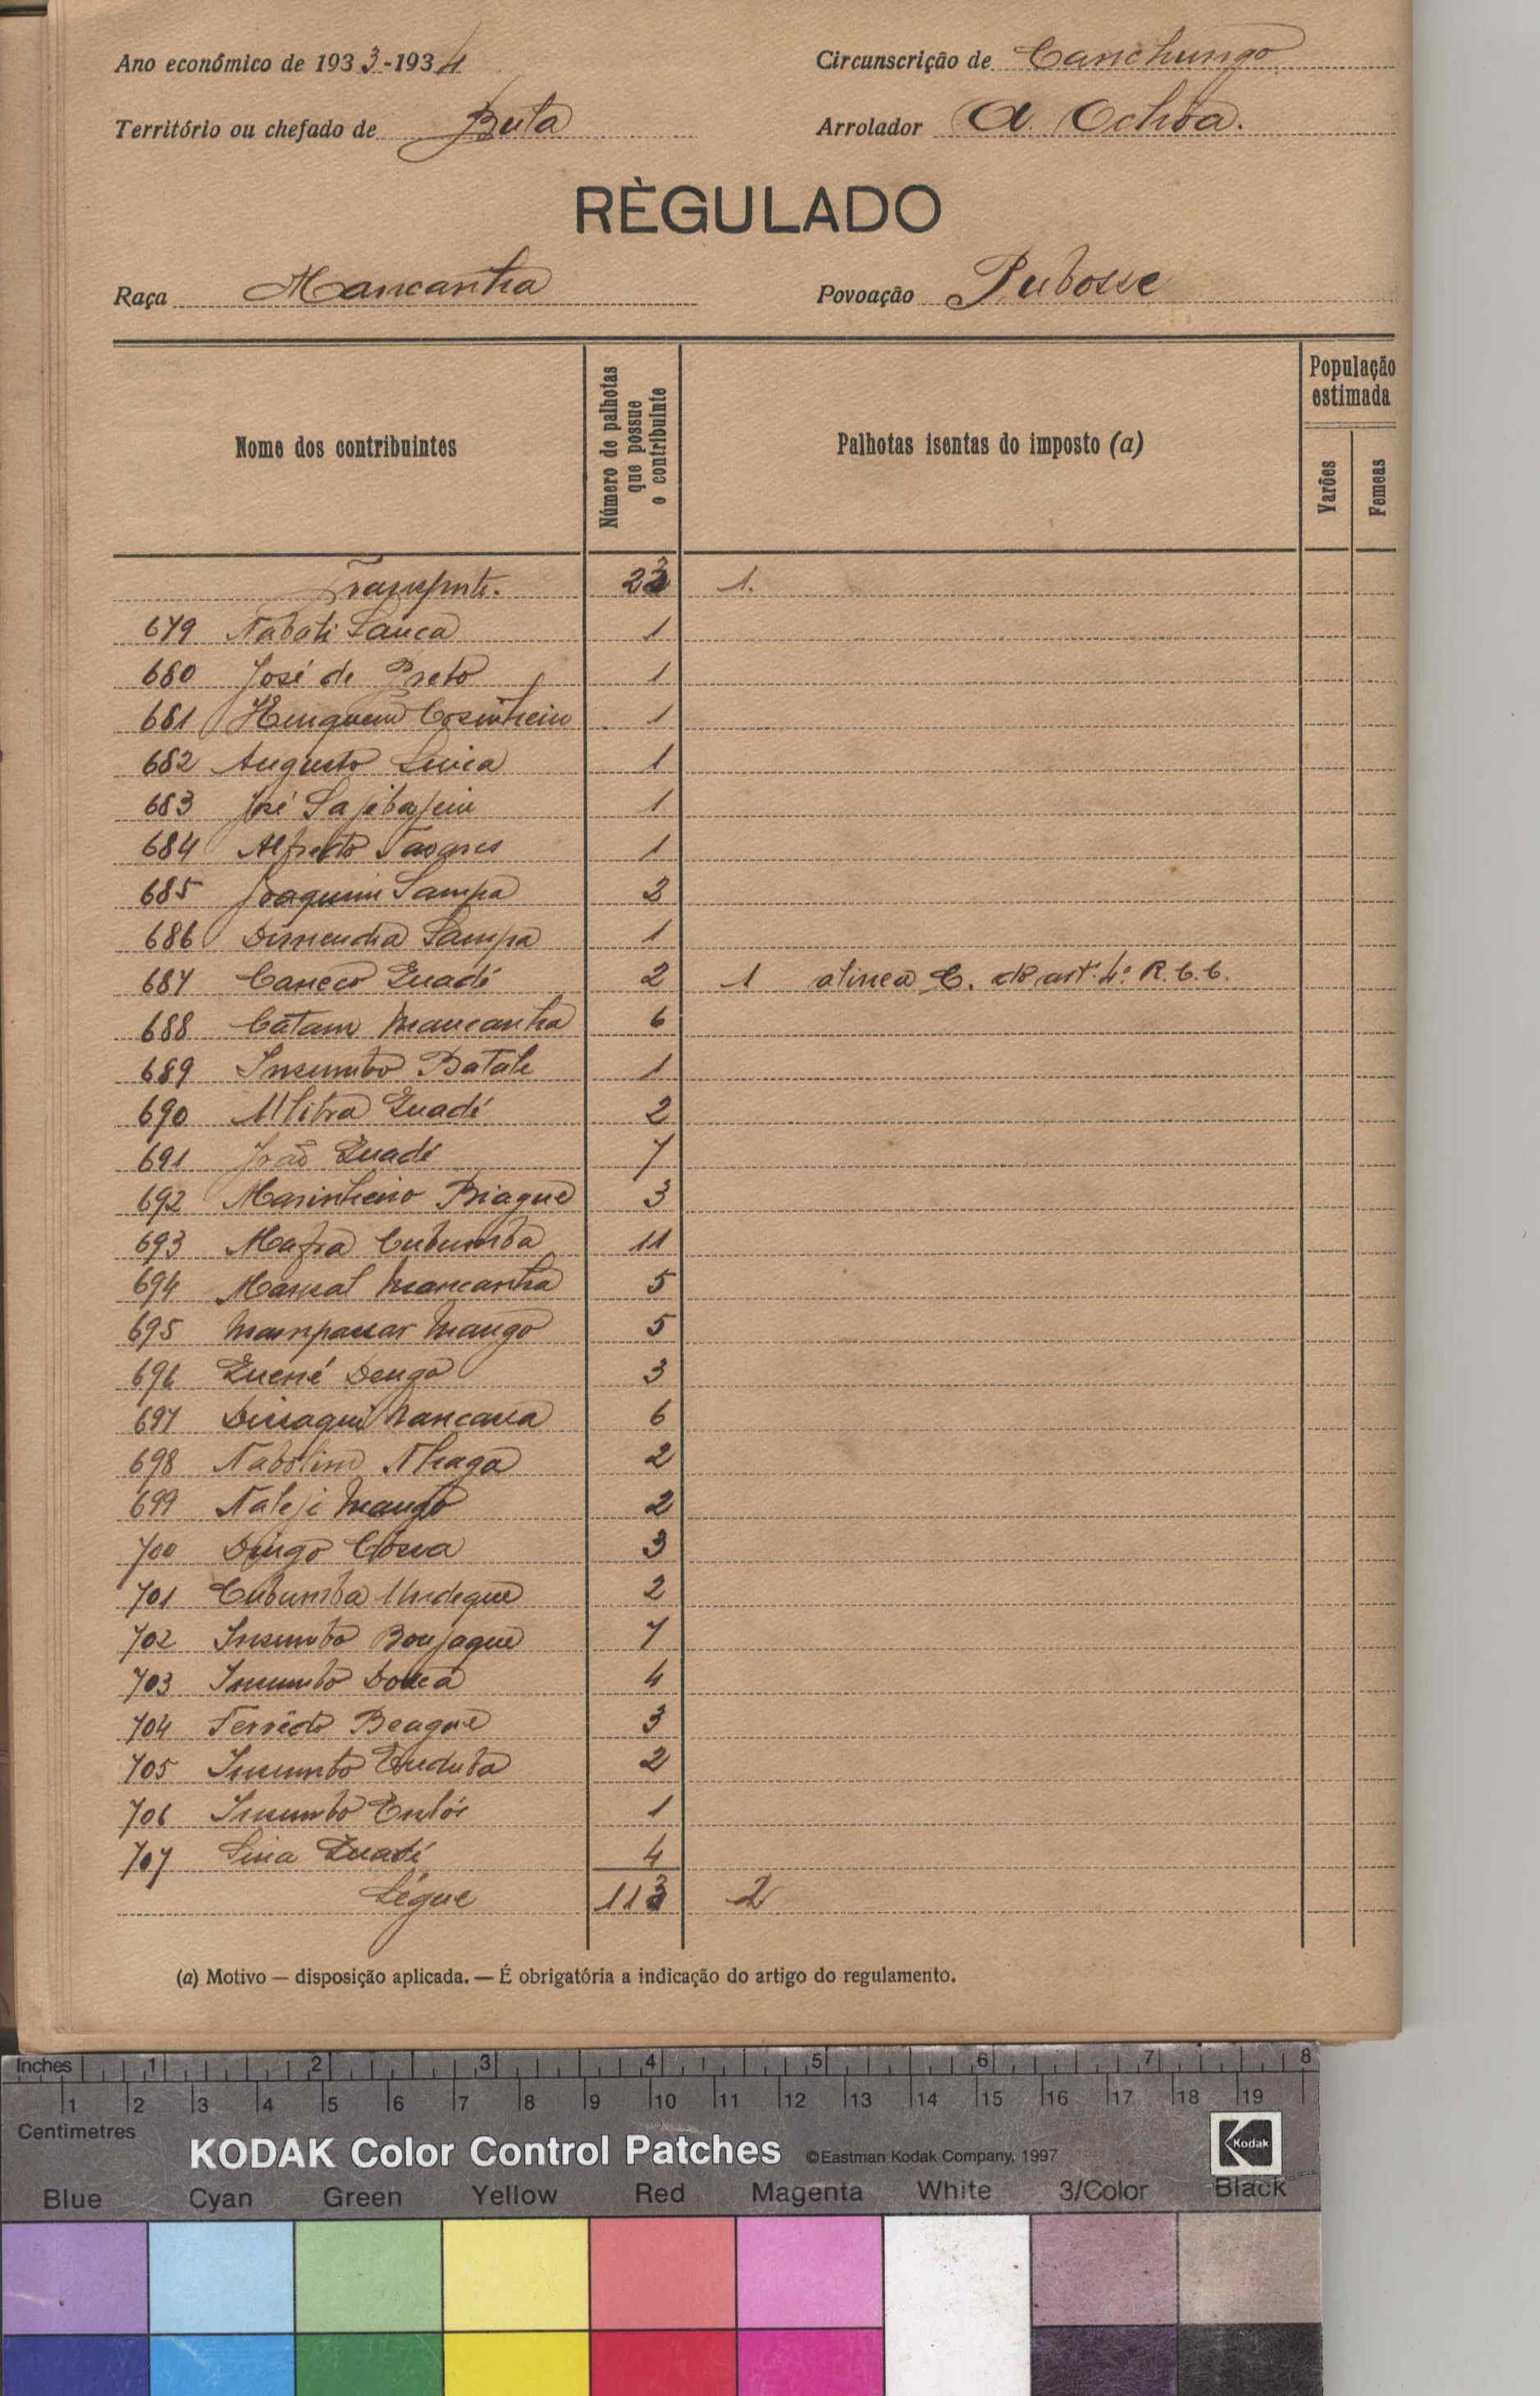 Ano económico de 1933-1934
Circunscrição de Canchungo
Território ou chefado de Bula
Arrolador A. Ochôa.
RÈGULADO
Raça Mancanha
Povoação Pubosse
Nome dos contribuintes
Número de palhotas que possue o contribuinte
Palhotas isentas do imposto (a)
População estimada
Varões
Femeas
Transporte. 23 1.
679 Nabati Sanca 1
680 José de Preto 1
681 Cosinheiro 1
682 Augusto 1
683 José 1
684 Alfredo Tavares 1
685 Joaquim Sampa 2
686 Sampa 1
687 Caneco Quadé 2 1 alinea C. do art. 4.º R. C. C.
688 Catam Mancanha 6
689 Insumbo Batale 1
690 Quadé 2
691 João Quadé 7
692 Marinheiro Biague 3
693 Mafra Cubumba 11
694 Marsal Mancanha 5
695 Mampassar Mango 5
696 Quené Denga 3
697 6
698 Nabolim Nhaga 2
699 Naleji Mango 2
700 Dingo Côssa 3
701 Cubumba Undeque 2
702 Insumbo Bonjaque 7
703 Insumbo 4
704 Beague 3
705 Insumbo 2
706 Insumbo 1
707 Quadé 4
Ségue 113 2
(a) Motivo — disposição aplicada. — É obrigatória a indicação do artigo do regulamento.
Inches 1 2 3 4 5 6 7 8
1 2 3 4 5 6 7 8 9 10 11 12 13 14 15 16 17 18 19
Centimetres
KODAK Color Control Patches ©Eastman Kodak Company, 1997 Kodak
Blue Cyan Green Yellow Red Magenta White 3/Color Black